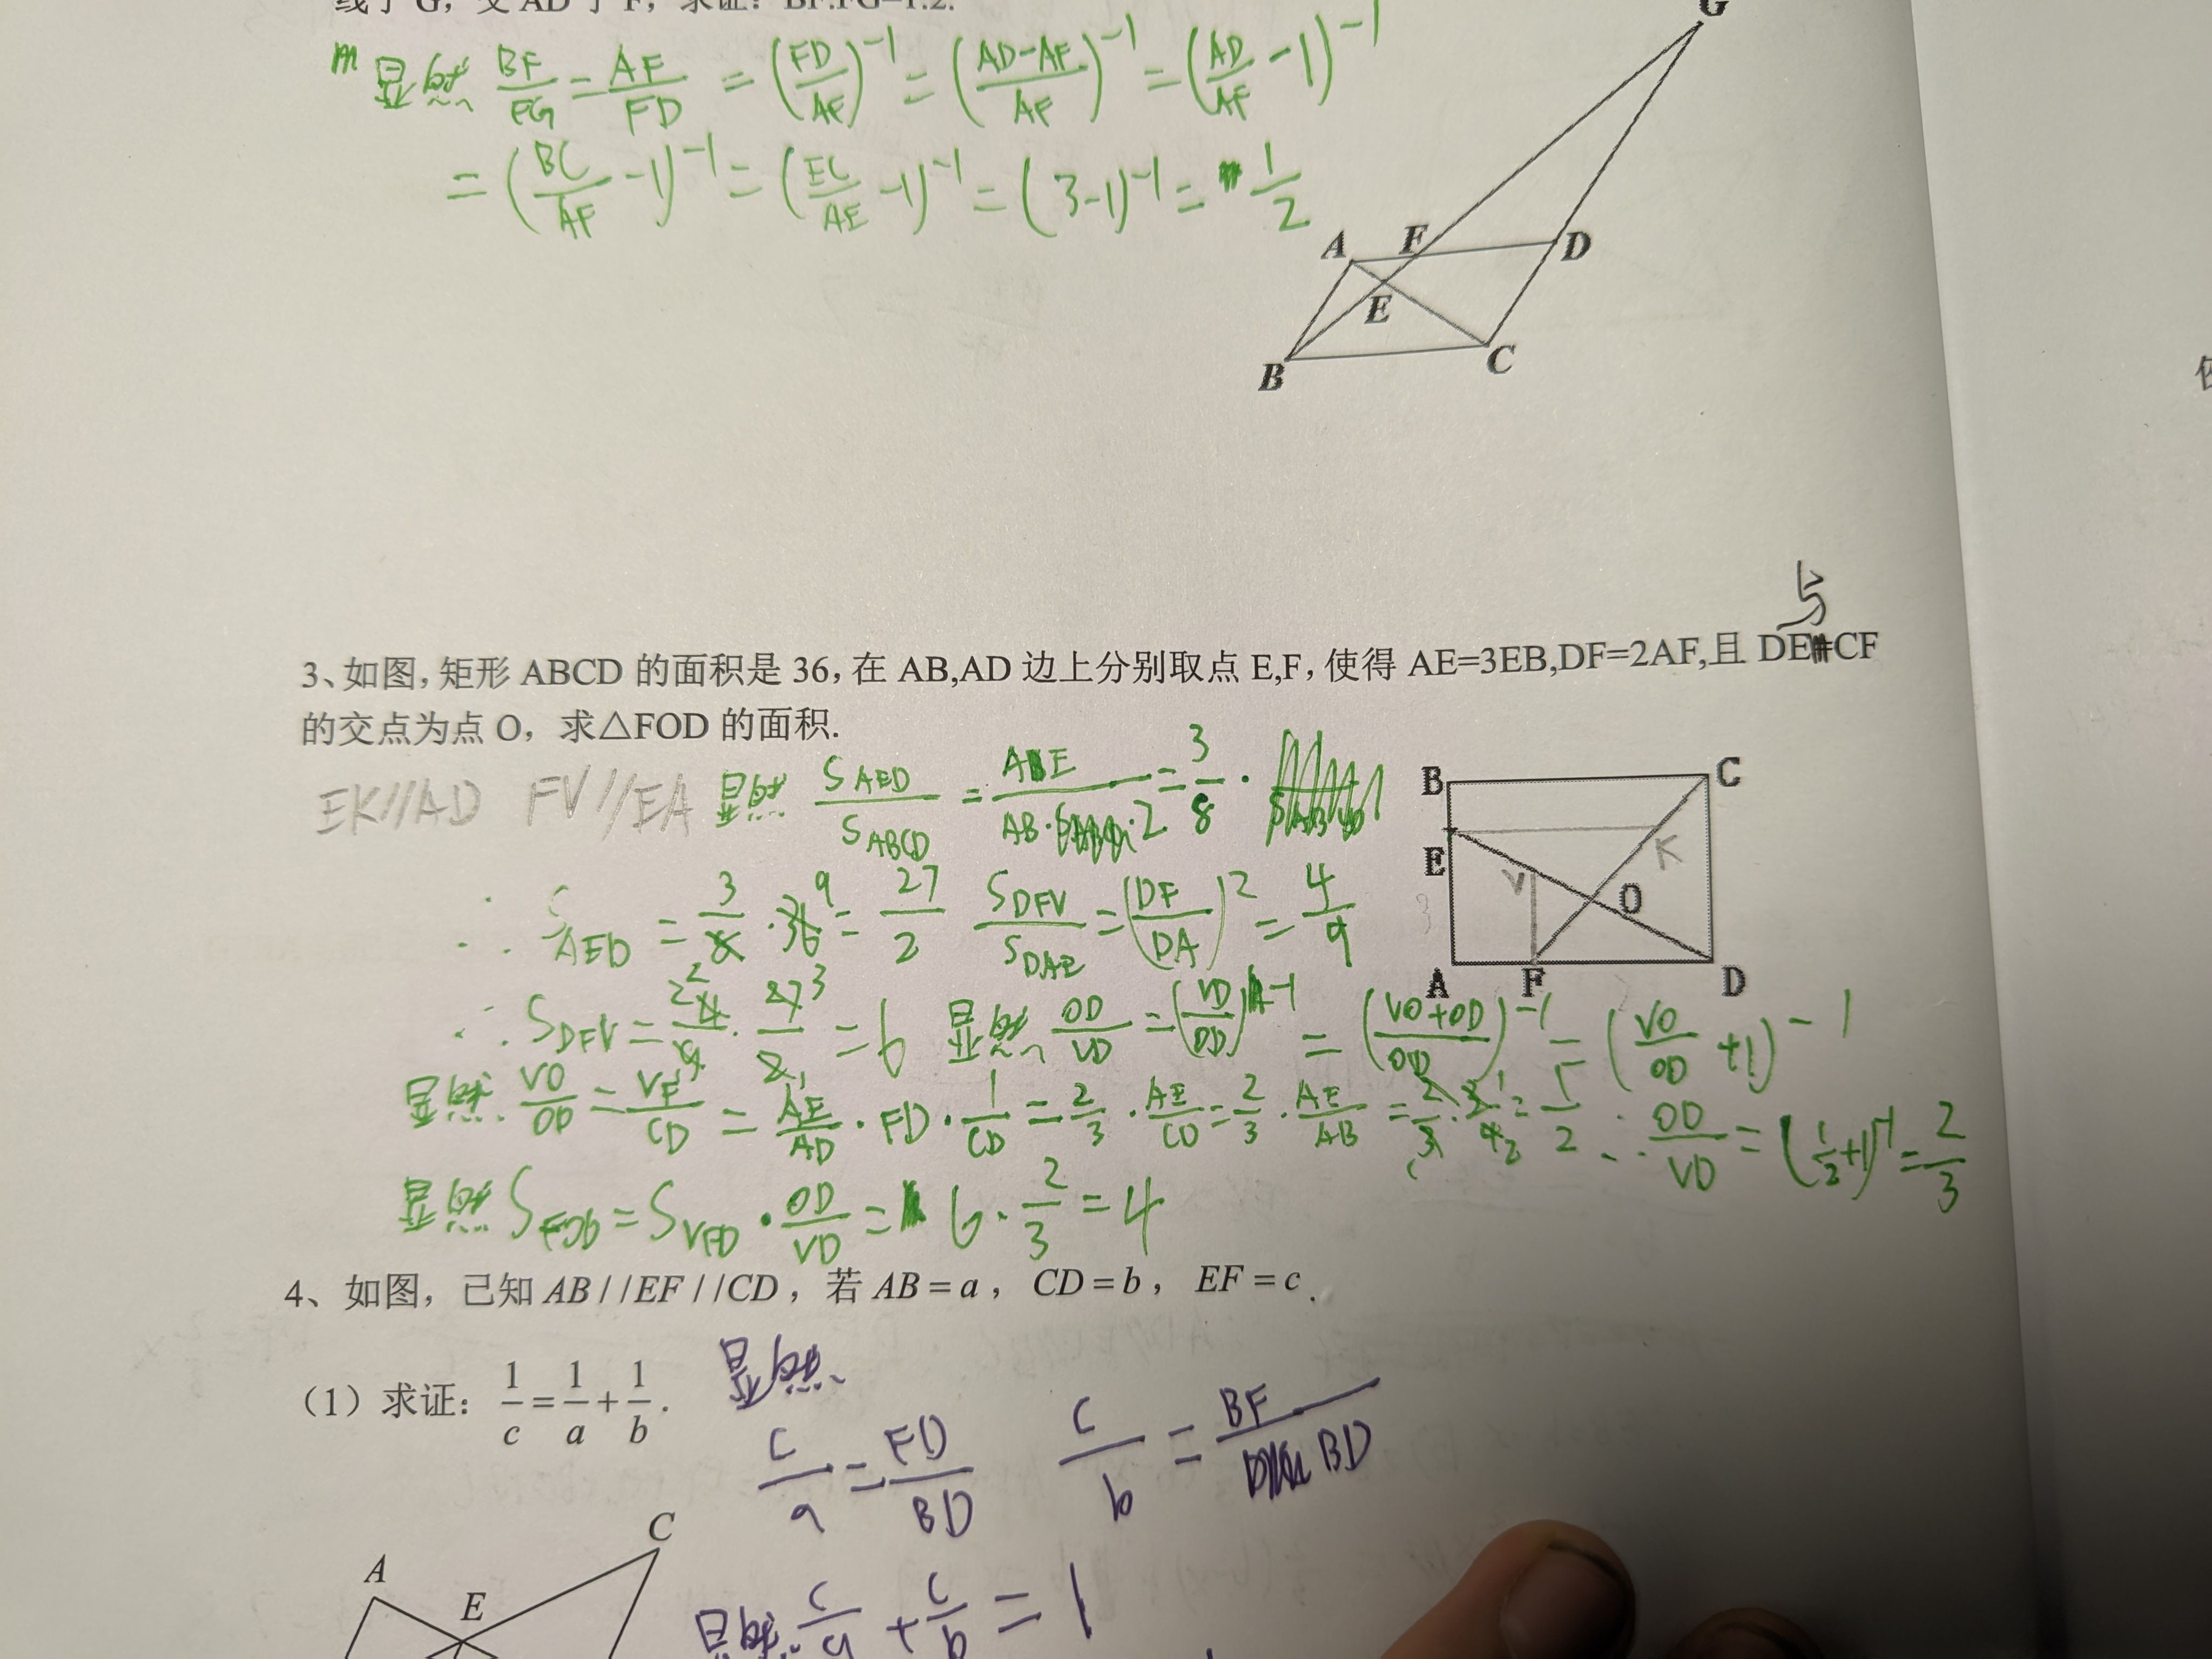 线于 G，交 AD 于 F，求证：BF:FG=1:2.
显然 BF/FG = AF/FD = (FD/AF)^-1 = (AD-AF/AF)^-1 = (AD/AF -1)^-1
= (BC/AF -1)^-1 = (EC/AE -1)^-1 = (3-1)^-1 = 1/2
G
A F D
E
B C
与
3、如图，矩形 ABCD 的面积是 36，在 AB,AD 边上分别取点 E,F，使得 AE=3EB,DF=2AF,且 DE CF
的交点为点 O，求△FOD 的面积.
EK//AD FV//EA 显然 S_AED/S_ABCD = AE/AB·2 = 3/8 ·
∴ S_AED = 3/8 · 36 9 = 27/2 S_DFV/S_DAE = (DF/DA)^2 = 4/9
∴ S_DFV = 4/9 · 27/2 = 6 显然 OD/VD = (VD/OD)^-1 = (VO+OD/OD)^-1 = (VO/OD +1)^-1
显然 VO/OD = VF/CD = AE/AD · FD · 1/CD = 2/3 · AE/CD = 2/3 · AE/AB = 2/3 · 3/4 = 1/2 ∴ OD/VD = (1/2+1)^-1 = 2/3
显然 S_FOD = S_VFD · OD/VD = 6 · 2/3 = 4
B C
E K
V O
3
A F D
4、如图，已知 AB//EF//CD，若 AB=a， CD=b， EF=c.
（1）求证：1/c = 1/a + 1/b.
显然
c/a = FD/BD c/b = BF/BD
显然 c/a + c/b = 1
C
A
E